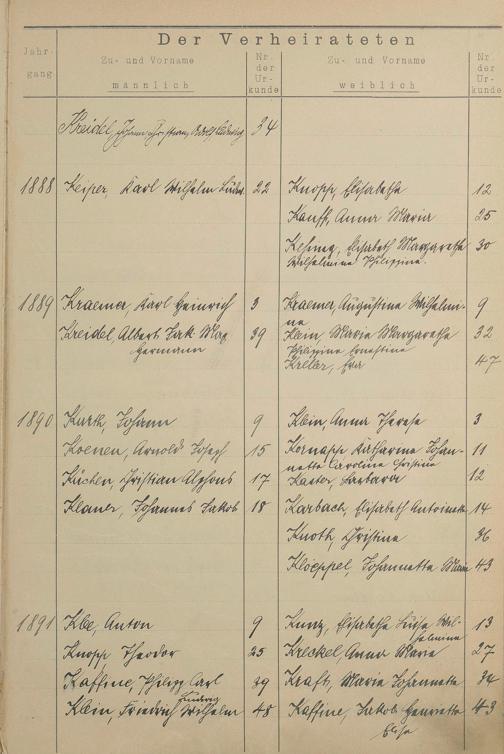 Der Verheirateten
Jahrgang Zu- und Vorname männlich Nr. der Urkunde Zu- und Vorname weiblich Nr. der Urkunde
Kreidel, Johann Christian Adolf Ludwig 34
1888 Keiper, Karl Wilhelm 22 Knopp, Elisabetha 12
Kauff, Anna Maria 25
Elisabeth Margaretha 30
Wilhelmine Philippine.
1889 Kraemer, Karl Heinrich 3 Kraemer, Augustine Wilhelmi- 9
ne
Kreidel, Albert Jak. Max 39 Klein Maria Margaretha 32
Hermann Philippine Ernestine
Keller, Eva 47
1890 Kurk, Johann 9 Klein, Anna Therese 3
Koenen, Arnold Josef 15 Kornapp Katharina Johan- 11
netta Caroline Christine
Küchen, Christian Alphons 17 Kaster, Barbara 12
Klauer, Johannes Jakob 18 Karbach, Elisabeth Antoinette 14
Knoth, Christina 36
Kloeppel, Johannetta Maria 43
1891 Klee, Anton 9 Kunz, Elisabetha Luise Wil- 13
helmine
Knopp Theodor 25 Kreckel, Anna Maria 27
Kaffine, Philipp Carl 39 Kraft, Maria Johannetta 34
Ludwig
Klein, Friedrich Wilhelm 48 Kaffine, Jakob Henrietta 43
Elise